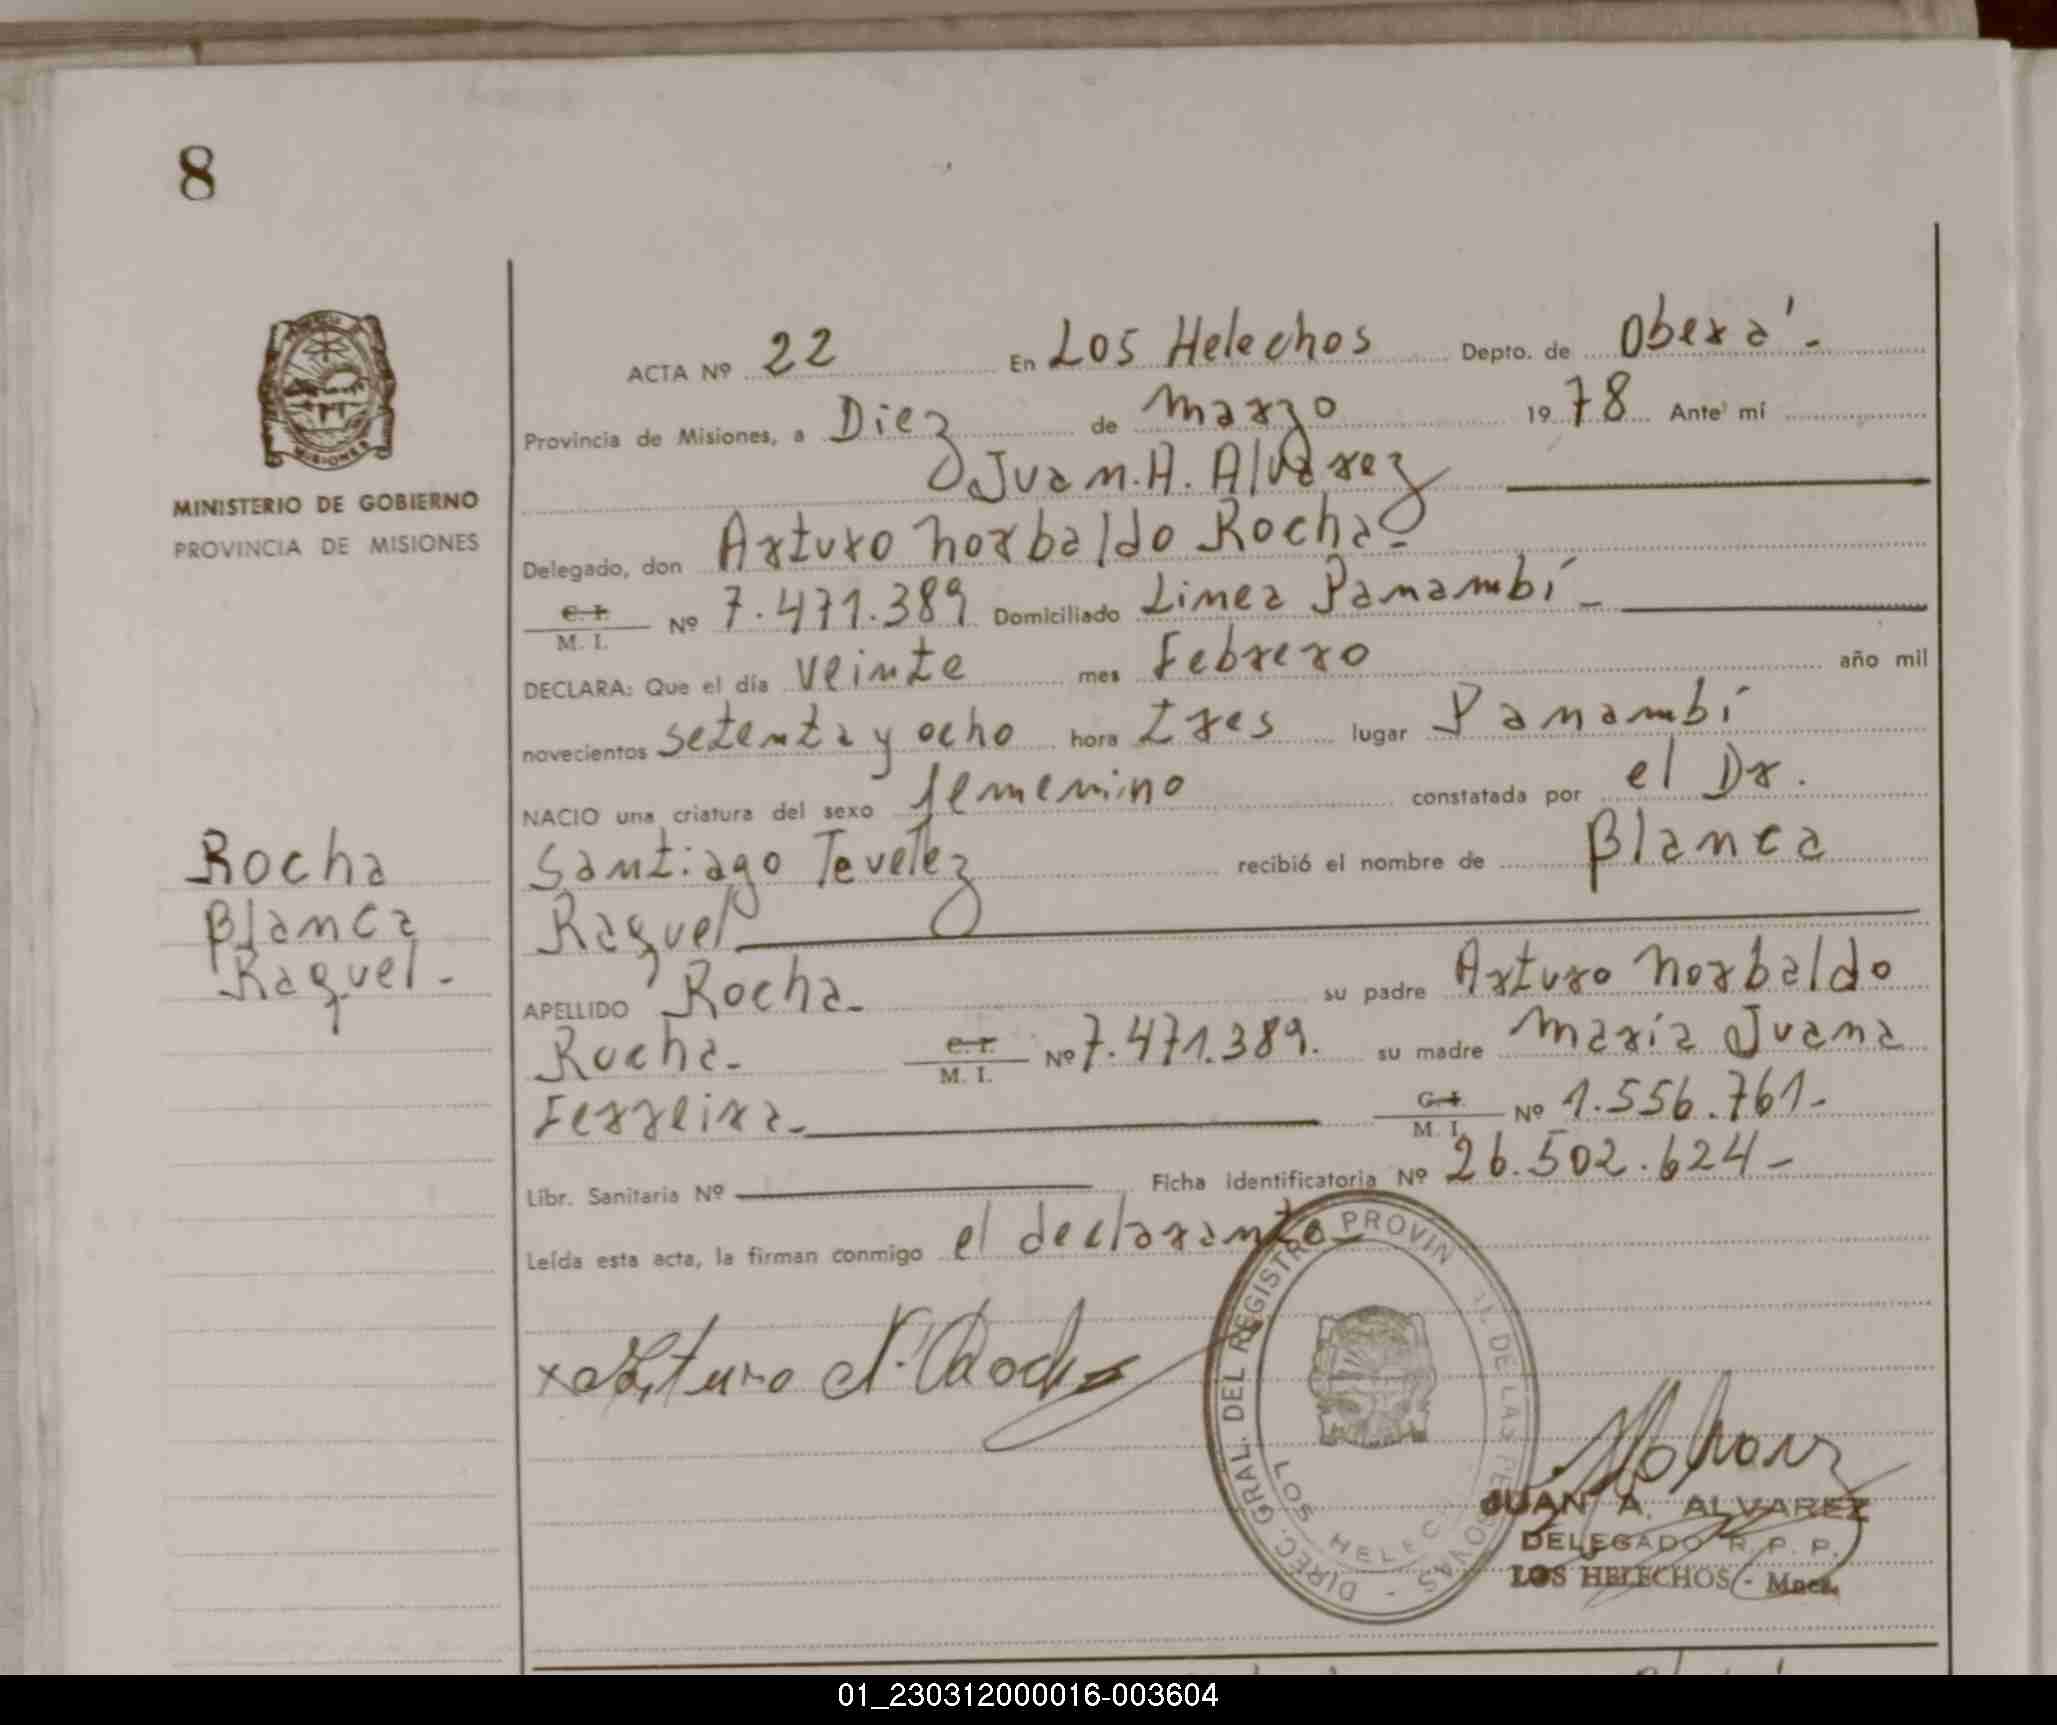 8
MISIONES
MINISTERIO DE GOBIERNO
PROVINCIA DE MISIONES
Rocha
Blanca
Raquel.-
ACTA Nº 22 En Los Helechos Depto. de Oberá.-
Provincia de Misiones, a Diez de Marzo 1978 Ante mí
Juan.A. Alvarez
Delegado, don Arturo Norbaldo Rocha-
C. I. / M. I. Nº 7.471.389 Domiciliado Linea Panambí-
DECLARA: Que el día veinte mes Febrero año mil
novecientos setenta y ocho hora tres lugar Panambí
NACIO una criatura del sexo femenino constatada por el Dr.
Santiago Tevelez recibió el nombre de Blanca
Raquel
APELLIDO Rocha- su padre Arturo Norbaldo
Rocha- C. I. / M. I. Nº 7.471.389. su madre María Juana
Ferreira- C. I. / M. I. Nº 1.556.761-
Libr. Sanitaria Nº Ficha identificatoria Nº 26.502.624-
Leída esta acta, la firman conmigo el declarante-
x Arturo N. Rocha
DIREC. GRAL. DEL REGISTRO PROVIN DE LAS PERSONAS -
LOS HELEC
JUAN A. ALVAREZ
DELEGADO R. P. P.
LOS HELECHOS - Mnes.
01_230312000016-003604